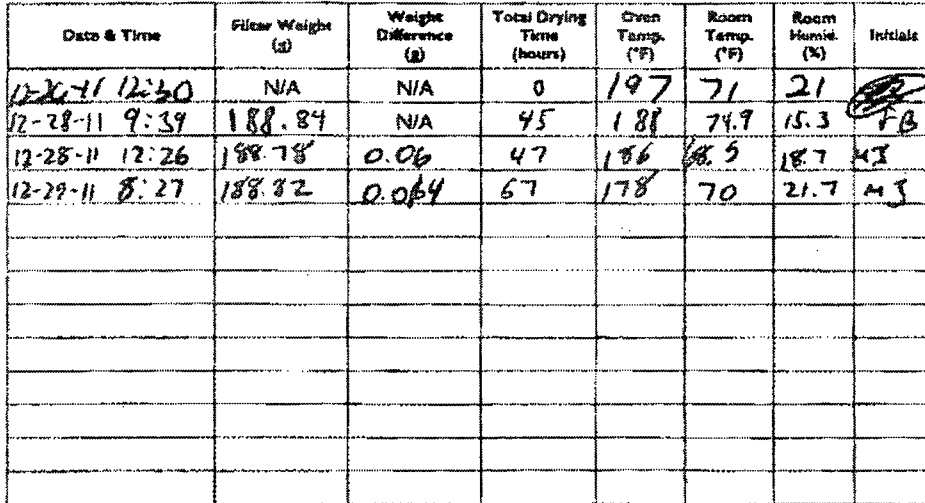 Date & Time Filter Weight (g) Weight Difference (g) Total Drying Time (hours) Oven Temp. (°F) Room Temp. (°F) Room Humid. (%) Initials
12-26-11 12:30 N/A N/A 0 197 71 21
12-28-11 9:39 188.84 N/A 45 188 74.9 15.3 FB
12-28-11 12:26 188.78 0.06 47 186 68.5 18.7 MJ
12-29-11 8:27 188.82 0.04 67 178 70 21.7 MJ